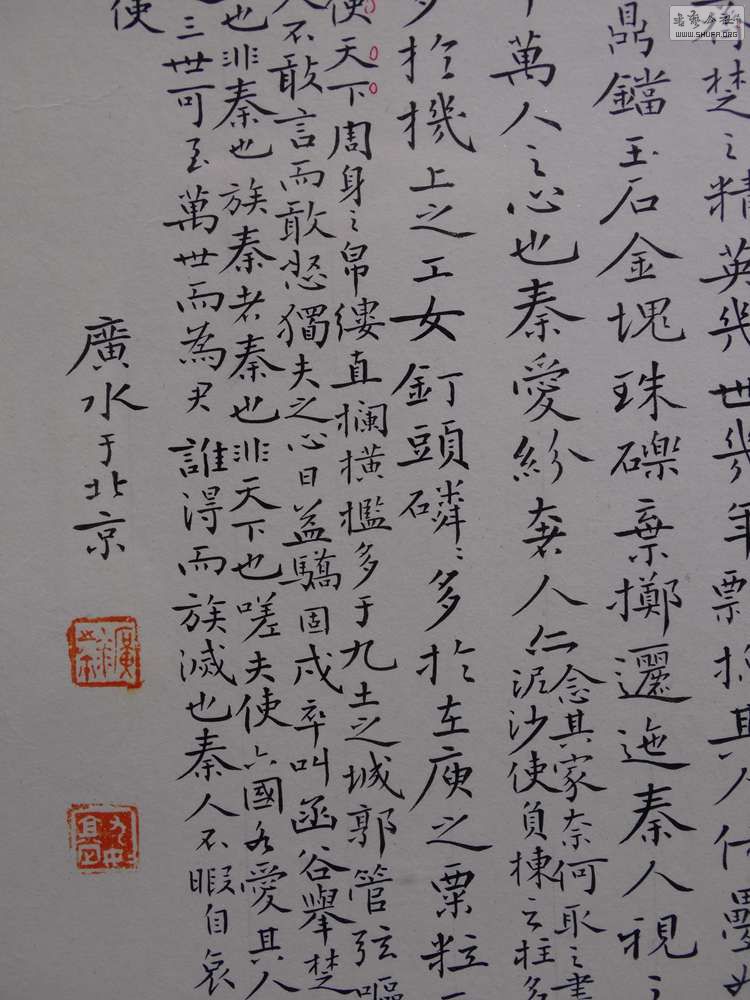 楚之精英幾世幾年票掠其人
鼎鐺玉石金塊珠礫棄擲邐迤秦人視之
萬人之心也秦愛紛奢人仁念其家奈何取之
泥沙使負棟之柱多
多於機上之工女釘頭磷磷多於在庾之粟粒
使天下周身之帛縷直欄橫檻多于九土之城郭管弦嘔
人不敢言而敢怒獨夫之心日益驕固戍卒叫函谷舉楚
也非秦也族秦者秦也非天下也嗟夫使六國各愛其人
三世可至萬世而為君誰得而族滅也秦人不暇自哀
使
廣水于北京
書藝公社
WWW.SHUFA.ORG